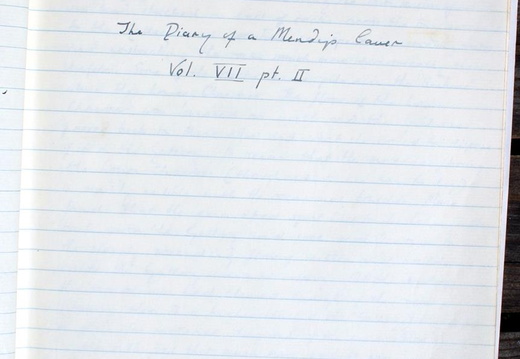 The Diary of a Mendip Caver
Vol. VII pt. II